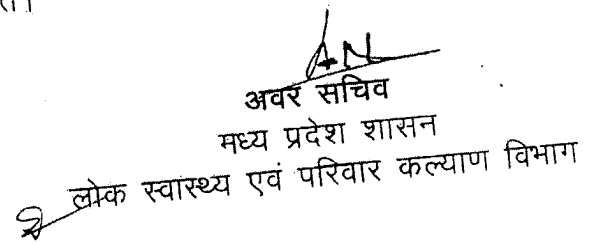 अवर सचिव
मध्य प्रदेश शासन
लोक स्वास्थ्य एवं परिवार कल्याण विभाग